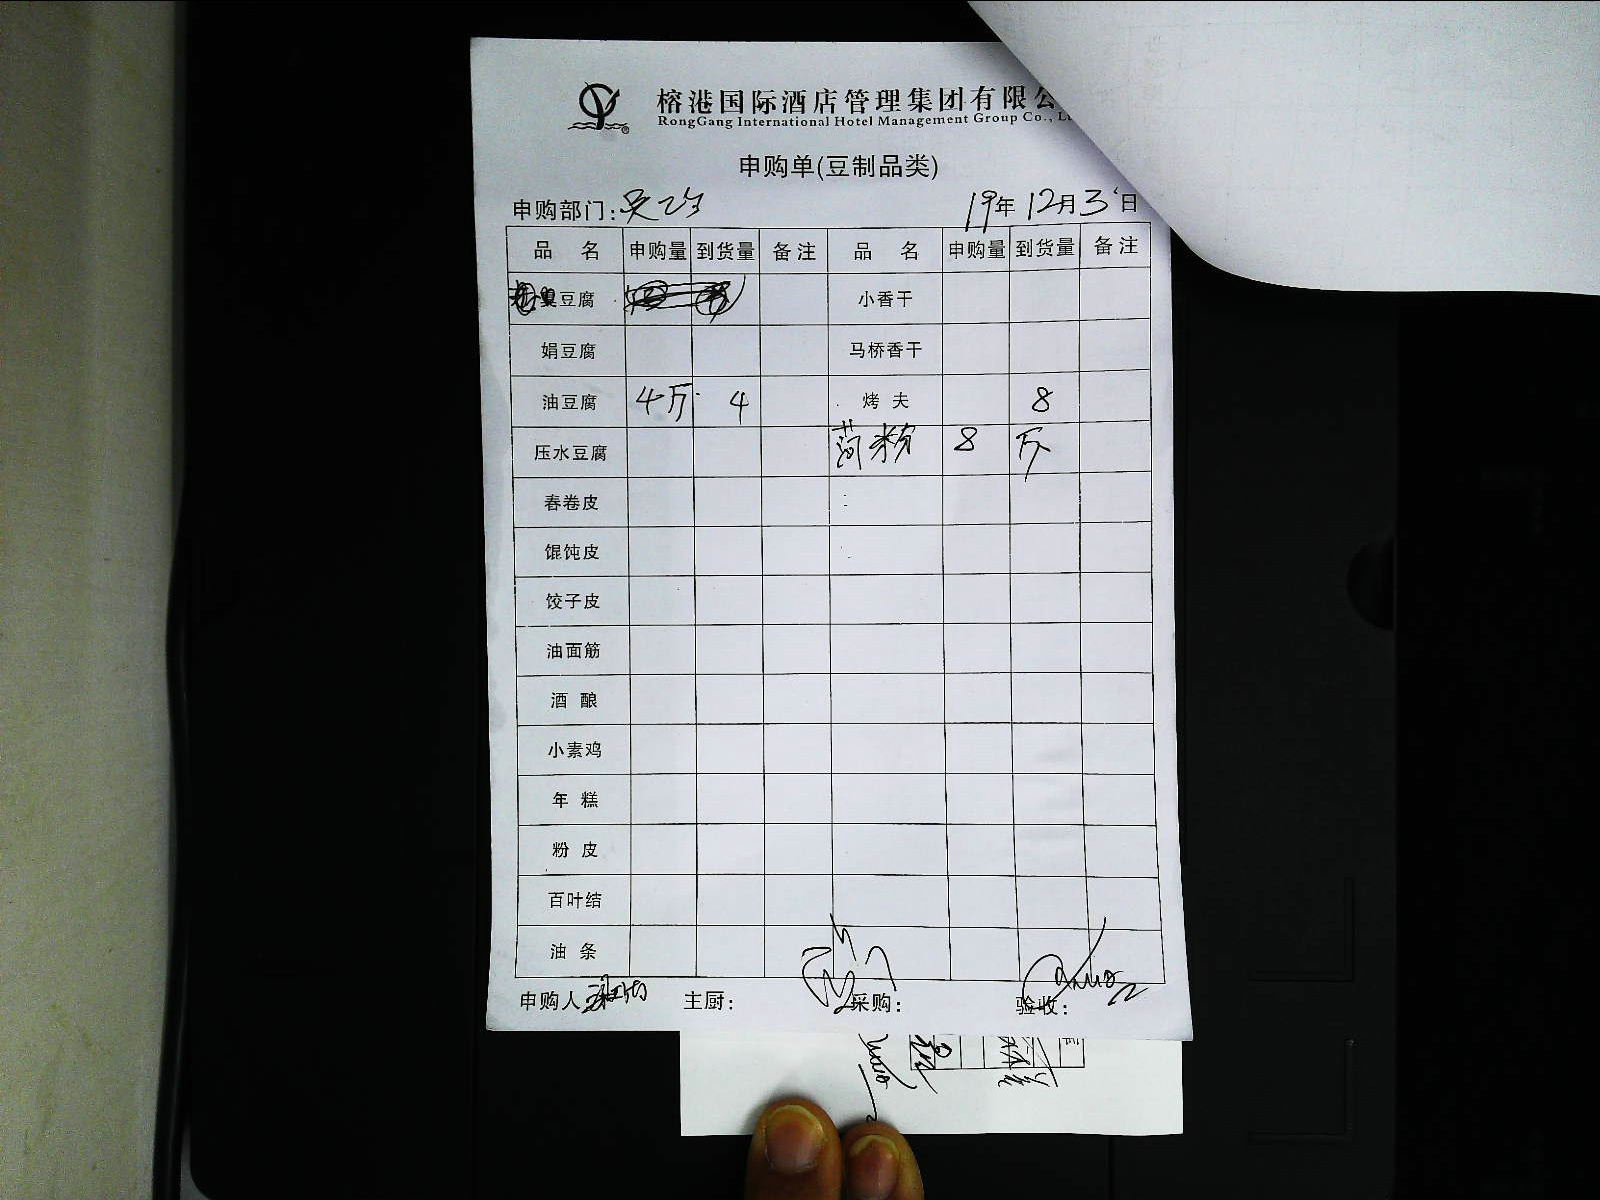 榕港国际酒店管理集团有限公
RongGang International Hotel Management Group Co., L
申购单(豆制品类)
申购部门: 19年 12月3日
品 名 申购量 到货量 备注 品 名 申购量 到货量 备注
臭豆腐 小香干
娟豆腐 马桥香干
油豆腐 4斤 4 烤 夫 8
压水豆腐 粉 8 斤
春卷皮
馄饨皮
饺子皮
油面筋
酒 酿
小素鸡
年 糕
粉 皮
百叶结
油 条
申购人 主厨: 采购: 验收: